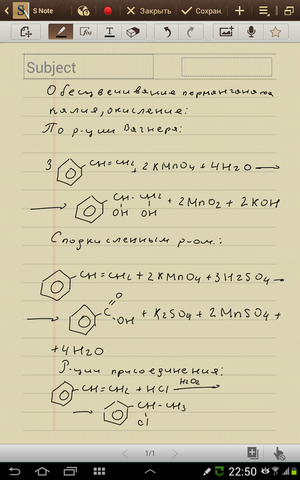 S Note
Закрыть
Сохран.
Subject
Обесцвечивание перманганата
калия, окисление:
По р-ции Вагнера:
3 CH=CH2 + 2KMnO4 + 4H2O →
→ CH-CH2 + 2MnO2 + 2KOH
OH OH
С подкисленным р-ом:
CH=CH2 + 2KMnO4 + 3H2SO4 →
→ C O OH + K2SO4 + 2MnSO4 +
+ 4H2O
Р-ции присоединения:
CH=CH2 + HCl H2O2 →
→ CH-CH3
Cl
1/1
22:50